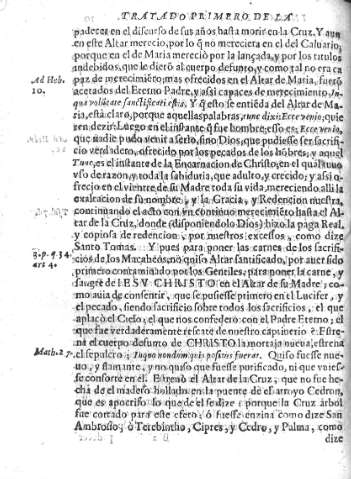 TRATADO PRIMERO DE LA
padecer en el discurso de sus años hasta morir en la Cruz. Y aun
en este Altar merecio, por lo q̃ no mereciera en el del Caluario,
porque en el de Maria mereciò por la lançada, y por los titulos
indebidos, que le dierõ al cuerpo defunto, y como tal no era ca
Ad Heb. 10.
paz de merecimiẽto; mas ofrecidos en el Altar de Maria, fuerõ
acetados del Eterno Padre, y assi capaces de merecimiento, In
qua volũtate sanctificati estis. Y q̃ esto se entiẽda del Altar de Ma-
ria, está claro, porque aquellas palabras, tunc dixi: Ecce venio; quie
ren dezir: Luego en el instante q̃ fue hombre, esso es; Ecce venio,
que nadie pudo venir a serlo, sino Dios, que pudiesse ser sacrifi-
cio verdadero, ofrecido por los pecados de los hõbres, y aquel
Tunc, es el instante de la Encarnacion de Christo, en el qual tuuo
vso de razon, y toda la sabiduria, que adulto, y crecido; y assi o-
frecio en el vientre de su Madre toda su vida, mereciendo alli la
exaltacion de su nombre, y la Gracia, y Redencion nuestra,
continuando el acto con vn continuo merecimiẽto hasta el Al-
tar de la Cruz, donde (disponiendolo Dios) hizo la paga Real,
y copiosa de redencion, por nuestros excessos, como dize
3. p. q. 34. art. 4.
Santo Tomas. Y pues para poner las carnes de los sacrifi-
cios de los Macabeos, no quiso Altar santificado, por auer sido
primero contaminado por los Gentiles; para poner la carne, y
sangre de IESV CHRISTO en el Altar de su Madre, co-
mo auia de consentir, que se pusiesse primero en el Lucifer, y
el pecado, siendo sacrificio sobre todos los sacrificios, el que
aplacò el Cielo, el que nos confedero con el Padre Eterno, el
que fue verdaderamente rescate de nuestro captiuerio? Estre-
na el cuerpo defunto de CHRISTO la mortaja nueua, estrena
Math. 27.
el sepulcro; In quo nondum quis positus fuerat. Quiso fuesse nue-
uo, y flamante, y no quiso que fuesse purificado, ni que vaies-
se consorte en el. Estrenò el Altar de la Cruz, que no fue he-
cha de el madero hollado en la puente de el arroyo Cedron,
que es apocrifo lo que de el se dize; porque la Cruz árbol
fue cortado para este efeto, ò fuesse enzina como dize San
Ambrosio; ò Terebintho, Cipres, y Cedro, y Palma, como
dize